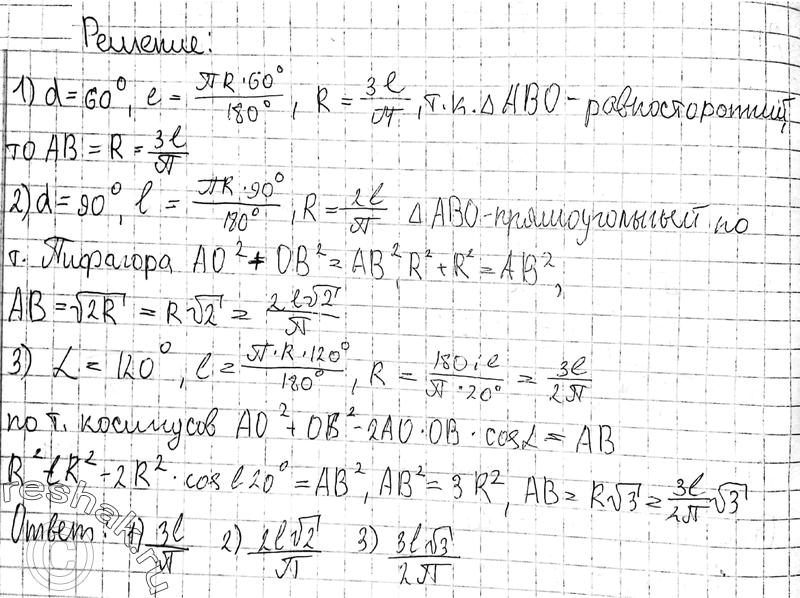 Решение:
1) α = 60°, l = πR·60°/180°, R = 3l/π, т.к. Δ ABO - равносторонний,
то AB = R = 3l/π
2) α = 90°, l = πR·90°/180°, R = 2l/π Δ ABO - прямоугольный по
т. Пифагора AO² + OB² = AB², R² + R² = AB²,
AB = √2R = R√2 = 2l√2/π
3) α = 120°, l = π·R·120°/180°, R = 180·l/π·20° = 3l/2π
по т. косинусов AO² + OB² - 2AO·OB·cosα = AB
R² + R² - 2R²·cos120° = AB², AB² = 3R², AB = R√3 = 3l/2π √3
Ответ: 1) 3l/π 2) 2l√2/π 3) 3l√3/2π
reshak.ru